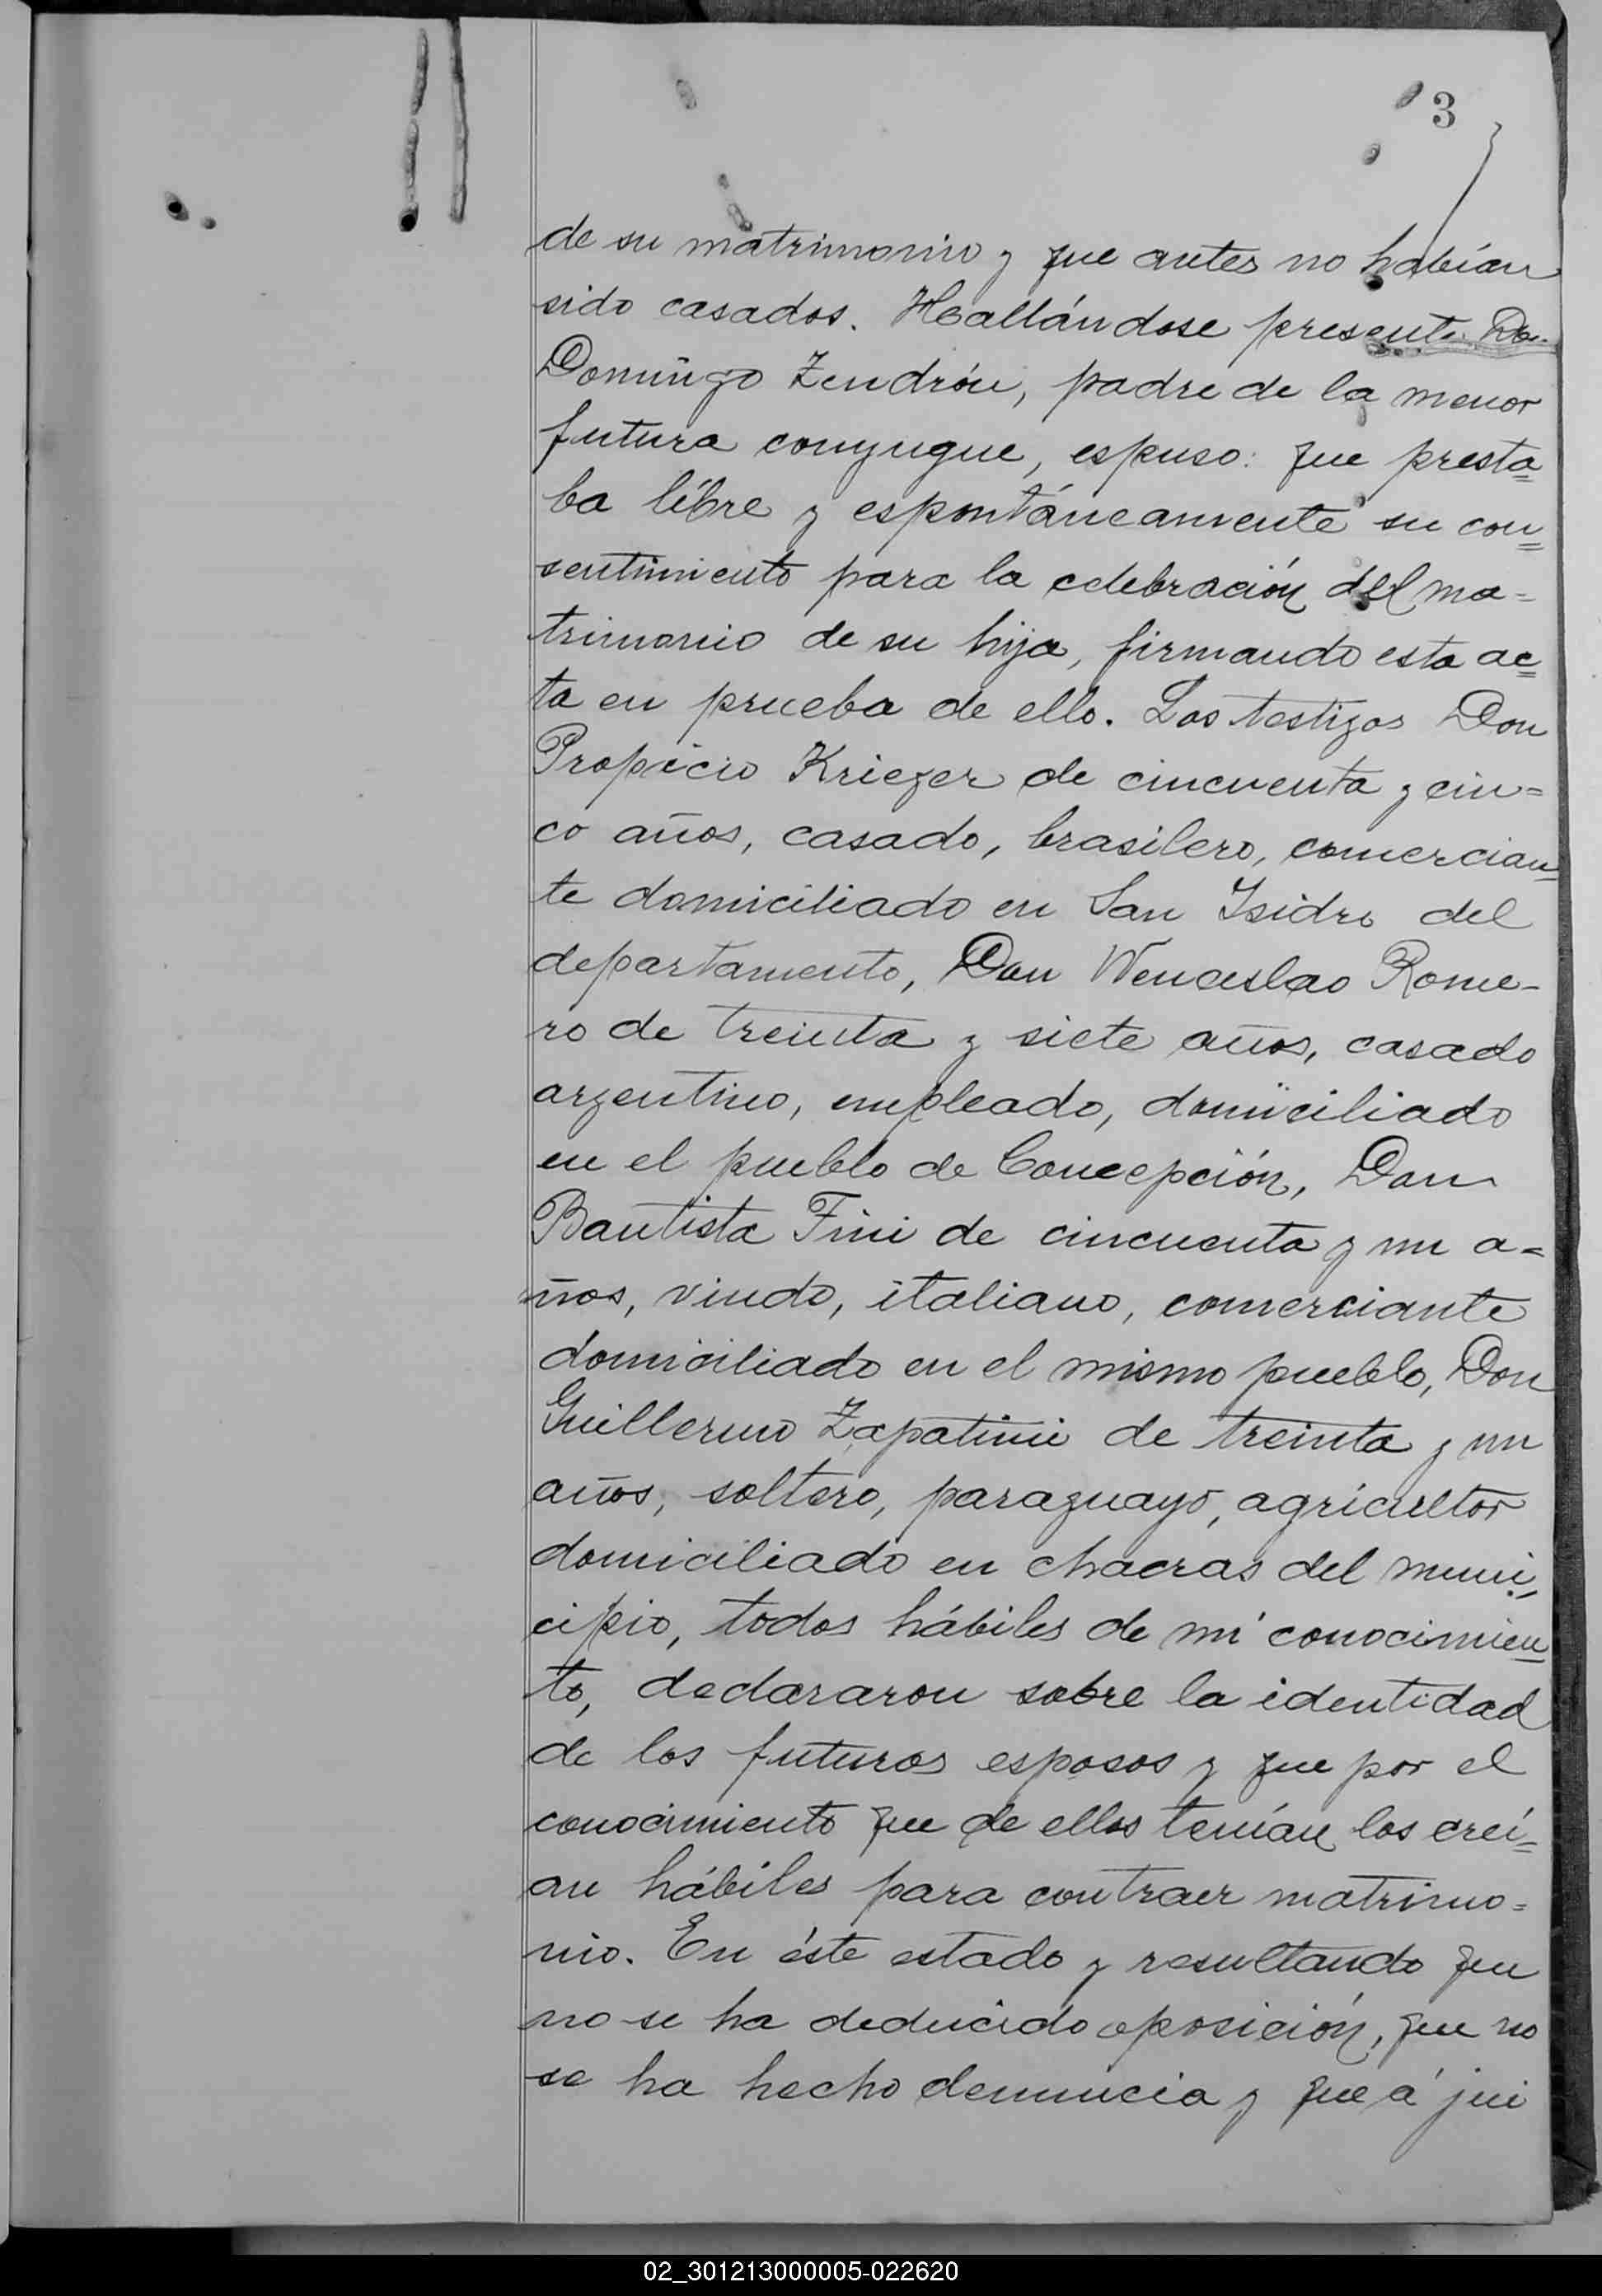 3
de su matrimonio y que antes no habían
sido casados. Hallándose presente Don
Domingo Zendrón, padre de la menor
futura conyugue, espuso: que presta=
ba líbre y espontáneamente su con=
sentimiento para la celebración del ma=
trimonio de su hija, firmando esta ac=
ta en prueba de ello. Los testigos Don
Propicio Krieger de cincuenta y cin=
co años, casado, brasilero, comercian=
te domiciliado en San Isidro del
departamento, Don Wenceslao Rome-
ro de treinta y siete años, casado
argentino, empleado, domiciliado
en el pueblo de Concepción, Don
Bautista Fini de cincuenta y un a=
ños, viudo, italiano, comerciante
domiciliado en el mismo pueblo, Don
Guillermo Zapatini de treinta y un
años, soltero, paraguayo, agricultor
domiciliado en chacras del muni=
cipio, todos hábiles de mi conocimien=
to, declararon sobre la identidad
de los futuros esposos y que por el
conocimiento que de ellos tenían los creí=
an hábiles para contraer matrimo=
nio. En éste estado y resultando que
no se ha deducido oposición, que no
se ha hecho denuncia y que á jui
02_301213000005-022620